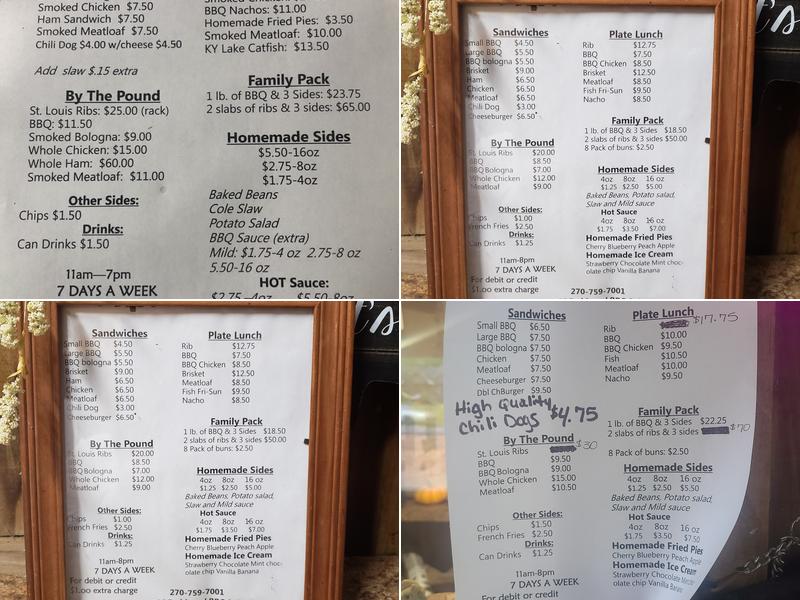 Smoked Chicken $7.50
Ham Sandwich $7.50
Smoked Meatloaf $7.50
Chili Dog $4.00 w/cheese $4.50
Add slaw $.15 extra
By The Pound
St. Louis Ribs: $25.00 (rack)
BBQ: $11.50
Smoked Bologna: $9.00
Whole Chicken: $15.00
Whole Ham: $60.00
Smoked Meatloaf: $11.00
Other Sides:
Chips $1.50
Drinks:
Can Drinks $1.50
11am—7pm
7 DAYS A WEEK
BBQ Nachos: $11.00
Homemade Fried Pies: $3.50
Smoked Meatloaf: $10.00
KY Lake Catfish: $13.50
Family Pack
1 lb. of BBQ & 3 Sides: $23.75
2 slabs of ribs & 3 sides: $65.00
Homemade Sides
$5.50-16oz
$2.75-8oz
$1.75-4oz
Baked Beans
Cole Slaw
Potato Salad
BBQ Sauce (extra)
Mild: $1.75-4 oz 2.75-8 oz
5.50-16 oz
HOT Sauce:
$2.75-4oz $5.50-8oz
Sandwiches
Small BBQ $4.50
Large BBQ $5.50
BBQ bologna $5.50
Brisket $9.00
Ham $6.50
Chicken $6.50
Meatloaf $6.50
Chili Dog $3.00
Cheeseburger $6.50
By The Pound
St. Louis Ribs $20.00
BBQ $8.50
BBQ Bologna $7.00
Whole Chicken $12.00
Meatloaf $9.00
Other Sides:
Chips $1.00
French Fries $2.50
Drinks:
Can Drinks $1.25
11am-8pm
7 DAYS A WEEK
For debit or credit
$1.00 extra charge
Plate Lunch
Rib $12.75
BBQ $7.50
BBQ Chicken $8.50
Brisket $12.50
Meatloaf $8.50
Fish Fri-Sun $9.50
Nacho $8.50
Family Pack
1 lb. of BBQ & 3 Sides $18.50
2 slabs of ribs & 3 sides $50.00
8 Pack of buns: $2.50
Homemade Sides
4oz 8oz 16 oz
$1.25 $2.50 $5.00
Baked Beans, Potato salad,
Slaw and Mild sauce
Hot Sauce
4oz 8oz 16 oz
$1.75 $3.50 $7.00
Homemade Fried Pies
Cherry Blueberry Peach Apple
Homemade Ice Cream
Strawberry Chocolate Mint choc-
olate chip Vanilla Banana
270-759-7001
's
Sandwiches
Small BBQ $4.50
Large BBQ $5.50
BBQ bologna $5.50
Brisket $9.00
Ham $6.50
Chicken $6.50
Meatloaf $6.50
Chili Dog $3.00
Cheeseburger $6.50
By The Pound
St. Louis Ribs $20.00
BBQ $8.50
BBQ Bologna $7.00
Whole Chicken $12.00
Meatloaf $9.00
Other Sides:
Chips $1.00
French Fries $2.50
Drinks:
Can Drinks $1.25
11am-8pm
7 DAYS A WEEK
For debit or credit
$1.00 extra charge
Plate Lunch
Rib $12.75
BBQ $7.50
BBQ Chicken $8.50
Brisket $12.50
Meatloaf $8.50
Fish Fri-Sun $9.50
Nacho $8.50
Family Pack
1 lb. of BBQ & 3 Sides $18.50
2 slabs of ribs & 3 sides $50.00
8 Pack of buns: $2.50
Homemade Sides
4oz 8oz 16 oz
$1.25 $2.50 $5.00
Baked Beans, Potato salad,
Slaw and Mild sauce
Hot Sauce
4oz 8oz 16 oz
$1.75 $3.50 $7.00
Homemade Fried Pies
Cherry Blueberry Peach Apple
Homemade Ice Cream
Strawberry Chocolate Mint choc-
olate chip Vanilla Banana
270-759-7001
's
Sandwiches
Small BBQ $6.50
Large BBQ $7.50
BBQ bologna $7.50
Chicken $7.50
Meatloaf $7.50
Cheeseburger $7.50
Dbl ChBurger $9.50
High Quality
Chili Dogs $4.75
By The Pound
St. Louis Ribs $30
BBQ $9.50
BBQ Bologna $9.00
Whole Chicken $15.00
Meatloaf $10.50
Other Sides:
Chips $1.50
French Fries $2.50
Drinks:
Can Drinks $1.25
11am-8pm
7 DAYS A WEEK
For debit or credit
Plate Lunch
Rib $17.75
BBQ $10.00
BBQ Chicken $9.50
Fish $10.50
Meatloaf $10.00
Nacho $9.50
Family Pack
1 lb. of BBQ & 3 Sides $22.25
2 slabs of ribs & 3 sides $70
8 Pack of buns: $2.50
Homemade Sides
4oz 8oz 16 oz
$1.25 $2.50 $5.00
Baked Beans, Potato salad,
Slaw and Mild sauce
Hot Sauce
4oz 8oz 16 oz
$1.75 $3.50 $7.00
Homemade Fried Pies
Cherry Blueberry Peach Apple
Homemade Ice Cream
Strawberry Chocolate
olate chip Vanilla